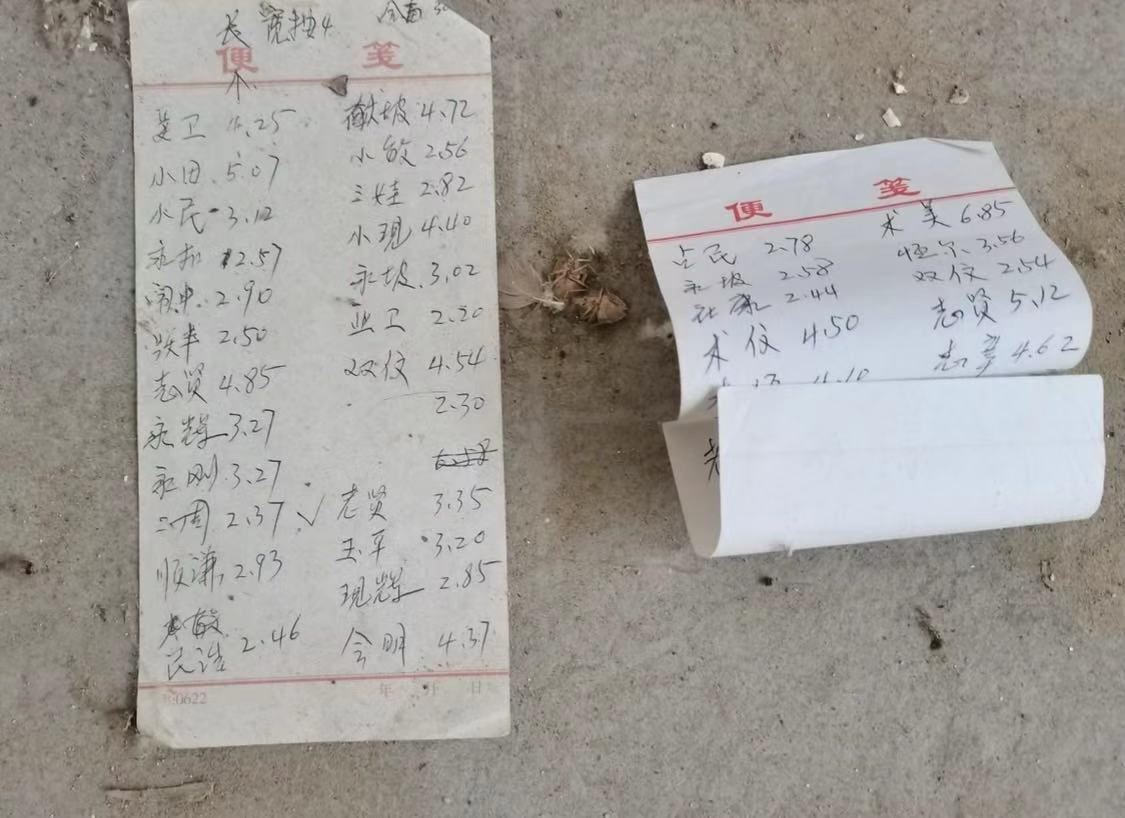 长 宽按4
便 笺
卫 4.25
小田 5.07
小民 3.12
永扣 2.57
闯申 2.90
跃丰 2.50
志贤 4.85
永辉 3.27
永刚 3.27
二周 2.37 √
顺谦 2.93
民浩 2.46
献坡 4.72
小敏 2.56
三娃 2.82
小现 4.40
永坡 3.02
卫 2.20
双仪 4.54
2.30
老贤 3.35
玉平 3.20
现辉 2.85
会明 4.37
0622 年 月 日
便 笺
占民 2.78
永坡 2.58
2.44
术仪 4.50
4.10
术美 6.85
恒尔 3.56
双仪 2.54
志贤 5.12
志 4.62